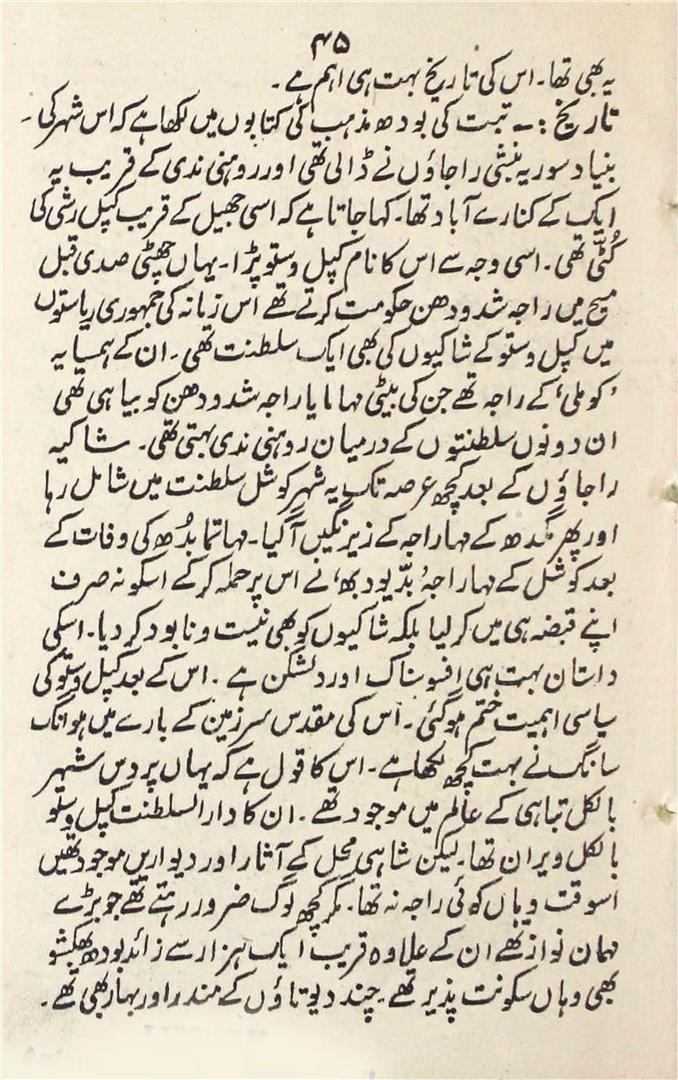 ۴۵
یہ بھی تھا۔ اس کی تاریخ بہت ہی اہم ہے۔
تاریخ :۔ تبت کی بودھ مذہب کی کتابوں میں لکھا ہے کہ اس شہر کی۔
بنیاد سوریہ بنشی راجاؤں نے ڈالی تھی اور روہنی ندی کے قریب یہ
ایک کے کنارے آباد تھا۔ کہا جاتا ہے کہ اسی جھیل کے قریب کپل رشی کی
کُٹی تھی۔ اسی وجہ سے اس کا نام کپل وستو پڑا۔ یہاں چھٹی صدی قبل
میح میں راجہ شدودھن حکومت کرتے تھے اس زمانہ کی جمہوری ریاستوں
میں کپل وستو کے شاکیوں کی بھی ایک سلطنت تھی۔ ان کے ہمسایہ
'کوملی' کے راجہ تھے جن کی بیٹی مہامایا راجہ شدودھن کو بیاہی تھی
ان دونوں سلطنتوں کے درمیان روہنی ندی بہتی تھی۔ شاکیہ
راجاؤں کے بعد کچھ عرصہ تک یہ شہر کوشل سلطنت میں شامل رہا
اور پھر مگدھ کے مہاراجہ کے زیر نگیں آ گیا۔ مہاتما بدُھ کی وفات کے
بعد کوشل کے مہاراجہ 'بدّیودبھ' نے اس پر حملہ کر کے اسکو نہ صرف
اپنے قبضہ ہی میں کر لیا بلکہ شاکیوں کو بھی نیست و نابود کر دیا۔ اسکی
داستان بہت ہی افسوسناک اور دلشکن ہے۔ اس کے بعد کپل وستو کی
سیاسی اہمیت ختم ہو گئی۔ اس کی مقدس سرزمین کے بارے میں ہوانگ
سانگ نے بہت کچھ لکھا ہے۔ اس کا قول ہے کہ یہاں پر دس شہر
بالکل تباہی کے عالم میں موجود تھے۔ ان کا دارالسلطنت کپل وستو
بالکل ویران تھا۔ لیکن شاہی محل کے آثار اور دیواریں موجود تھیں
اسوقت وہاں کوئی راجہ نہ تھا۔ مگر کچھ لوگ ضرور رہتے تھے جو بڑے
مہمان نواز تھے ان کے علاوہ قریب ایک ہزار سے زائد بودھ بھکشو
بھی وہاں سکونت پذیر تھے۔ چند دیوتاؤں کے مندر اور بہار بھی تھے۔